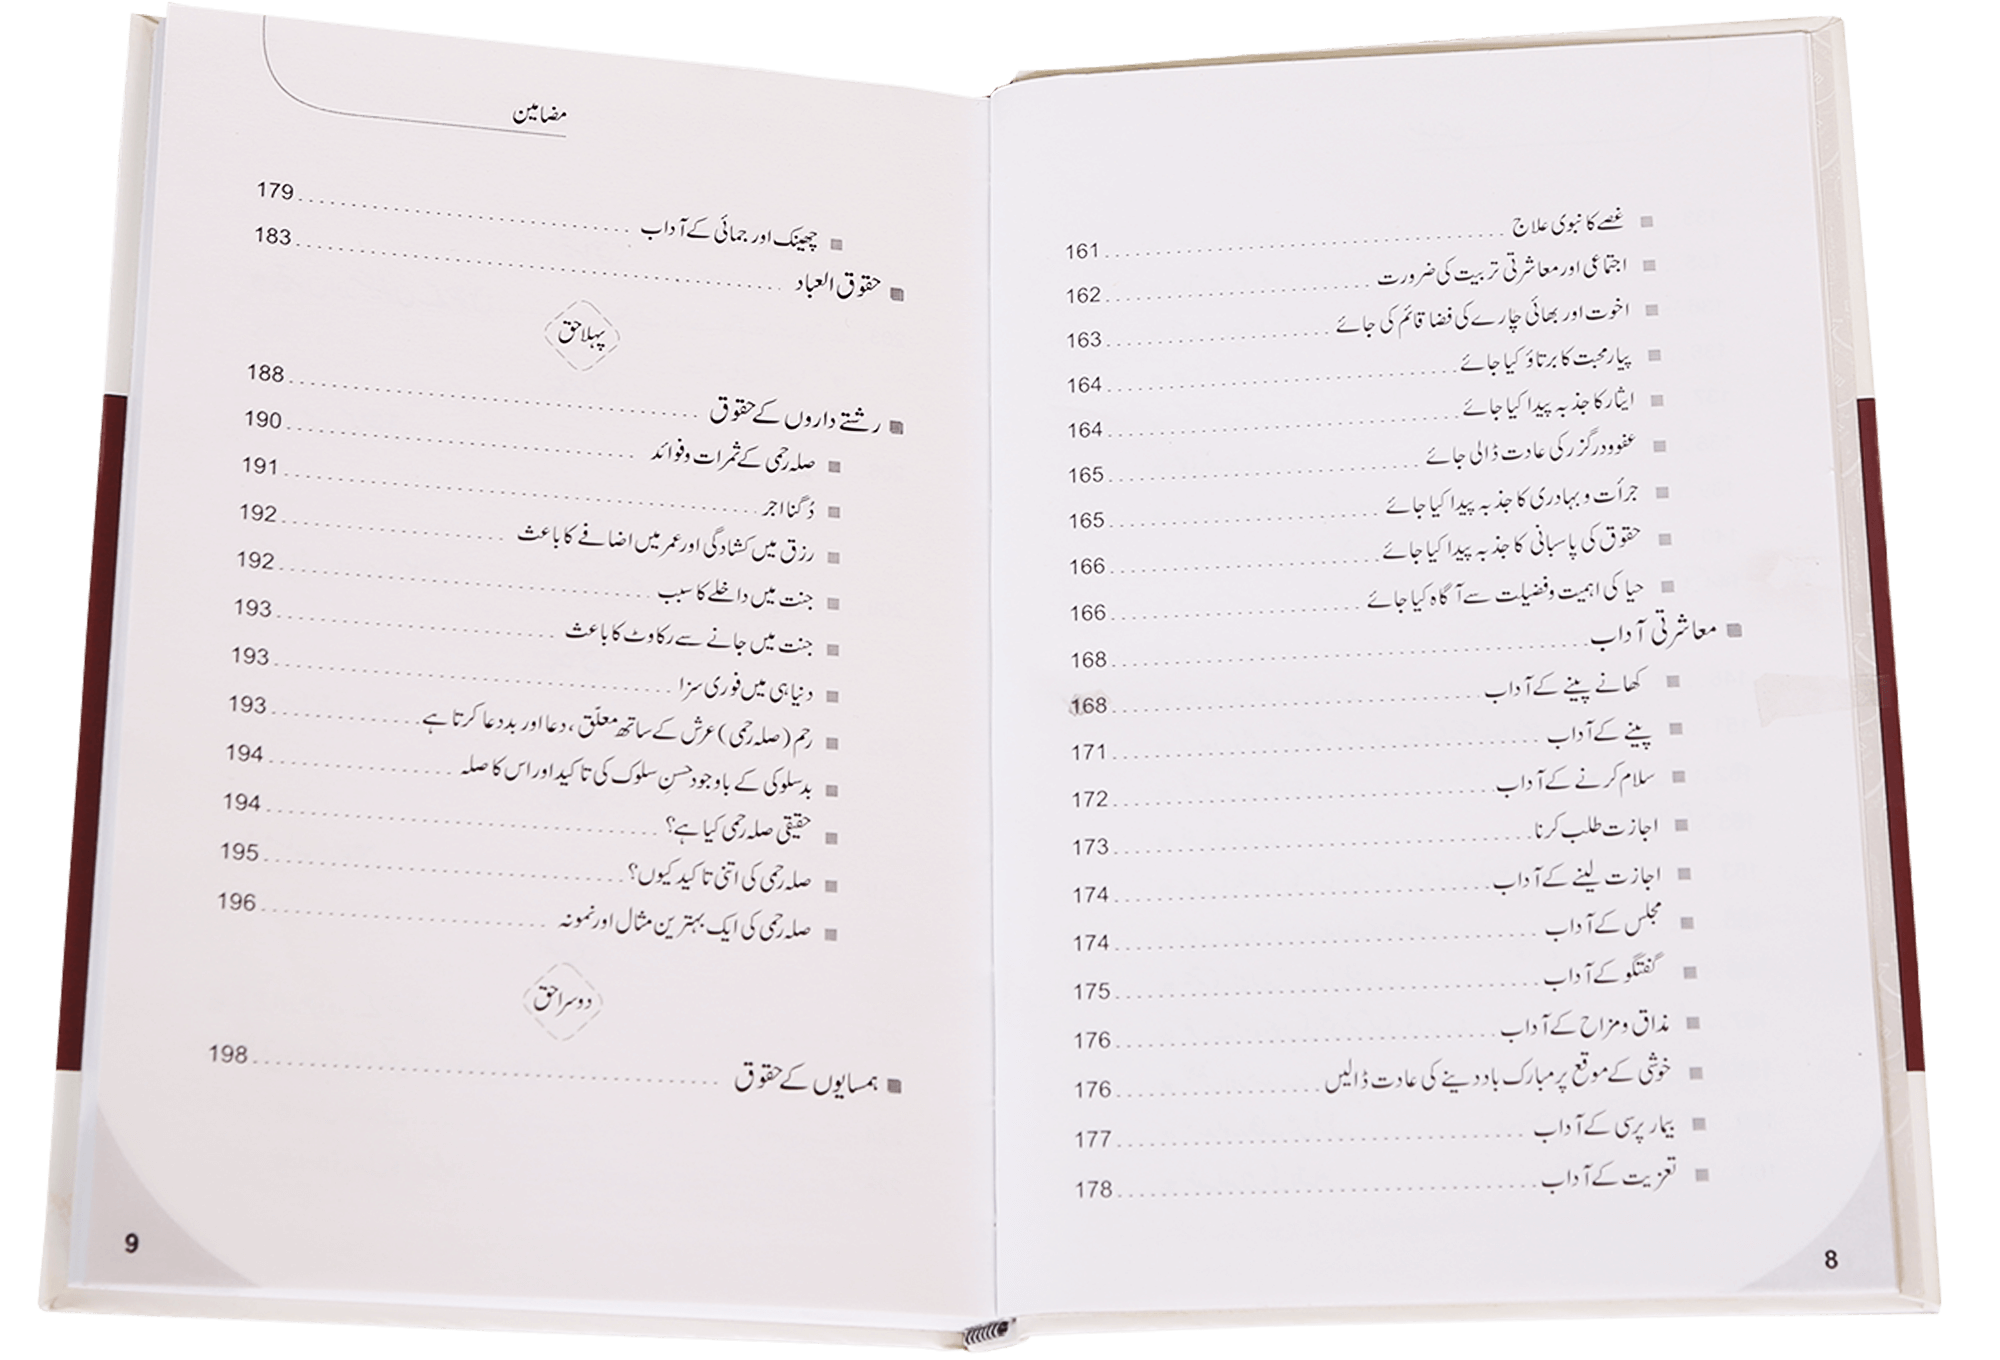 غصے کا نبوی علاج ........ 161
اجتماعی اور معاشرتی تربیت کی ضرورت ........ 162
اخوت اور بھائی چارے کی فضا قائم کی جائے ........ 163
پیار محبت کا برتاؤ کیا جائے ........ 164
ایثار کا جذبہ پیدا کیا جائے ........ 164
عفو و درگزر کی عادت ڈالی جائے ........ 165
جرأت و بہادری کا جذبہ پیدا کیا جائے ........ 165
حقوق کی پاسبانی کا جذبہ پیدا کیا جائے ........ 166
حیا کی اہمیت و فضیلت سے آگاہ کیا جائے ........ 166
معاشرتی آداب ........ 168
کھانے پینے کے آداب ........ 168
پینے کے آداب ........ 171
سلام کرنے کے آداب ........ 172
اجازت طلب کرنا ........ 173
اجازت لینے کے آداب ........ 174
مجلس کے آداب ........ 174
گفتگو کے آداب ........ 175
مذاق و مزاح کے آداب ........ 176
خوشی کے موقع پر مبارک باد دینے کی عادت ڈالیں ........ 176
بیمار پرسی کے آداب ........ 177
تعزیت کے آداب ........ 178
8
مضامین
چھینک اور جمائی کے آداب ........ 179
حقوق العباد ........ 183
پہلا حق
رشتے داروں کے حقوق ........ 188
صلہ رحمی کے ثمرات و فوائد ........ 190
دُگنا اجر ........ 191
رزق میں کشادگی اور عمر میں اضافے کا باعث ........ 192
جنت میں داخلے کا سبب ........ 192
جنت میں جانے سے رکاوٹ کا باعث ........ 193
دنیا ہی میں فوری سزا ........ 193
رحم (صلہ رحمی) عرش کے ساتھ معلّق، دعا اور بددعا کرتا ہے ........ 193
بدسلوکی کے باوجود حسنِ سلوک کی تاکید اور اس کا صلہ ........ 194
حقیقی صلہ رحمی کیا ہے؟ ........ 194
صلہ رحمی کی اتنی تاکید کیوں؟ ........ 195
صلہ رحمی کی ایک بہترین مثال اور نمونہ ........ 196
دوسرا حق
ہمسایوں کے حقوق ........ 198
9